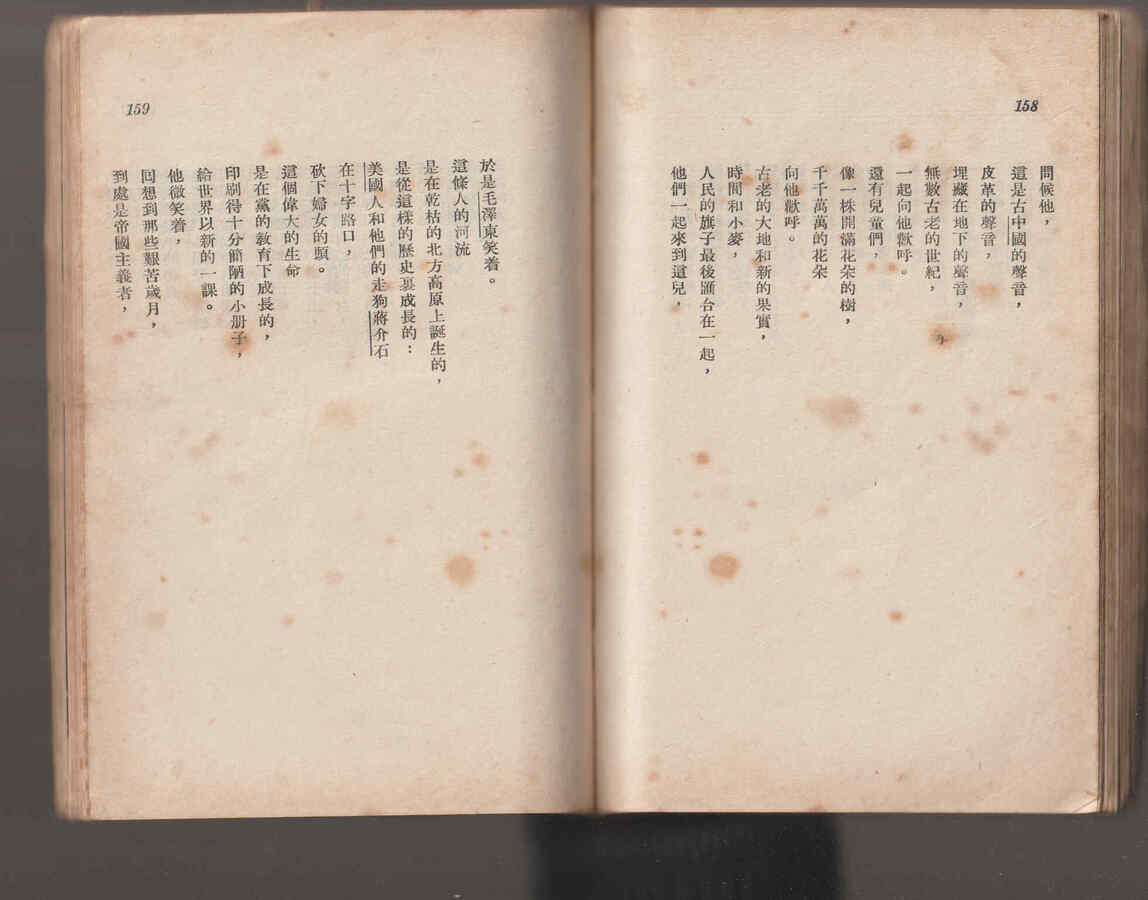 158
問候他，
這是古中國的聲音，
皮革的聲音，
埋藏在地下的聲音，
無數古老的世紀，
一起向他歡呼。
還有兒童們，
像一株開滿花朵的樹，
千千萬萬的花朵
向他歡呼。
古老的大地和新的果實，
時間和小麥，
人民的旗子最後匯合在一起，
他們一起來到這兒，
159
於是毛澤東笑着。
這條人的河流
是在乾枯的北方高原上誕生的，
是從這樣的歷史裏成長的：
美國人和他們的走狗蔣介石
在十字路口，
砍下婦女的頭。
這個偉大的生命
是在黨的教育下成長的，
印刷得十分簡陋的小册子，
給世界以新的一課。
他微笑着，
回想到那些艱苦歲月，
到處是帝國主義者，